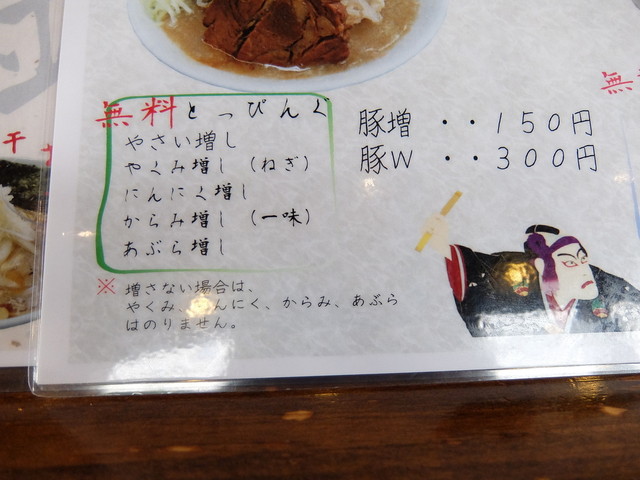 無料とっぴんぐ
やさい増し
やくみ増し（ねぎ）
にんにく増し
からみ増し（一味）
あぶら増し
※ 増さない場合は、
やくみ、にんにく、からみ、あぶら
はのりません。
豚増 ・・１５０円
豚Ｗ ・・３００円
無
干